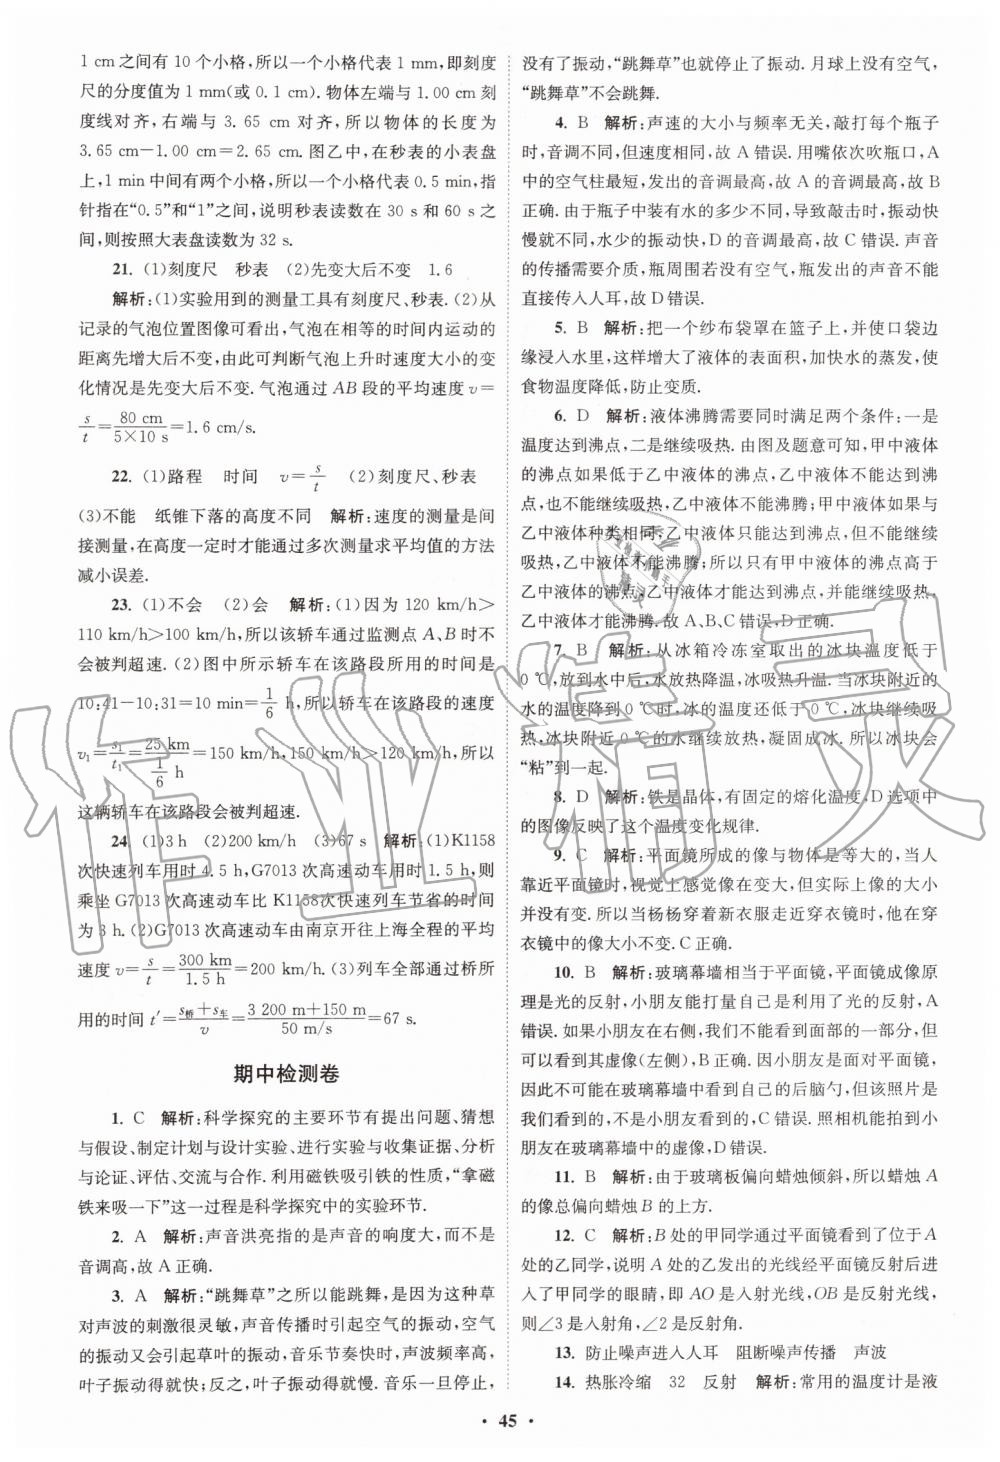 1 cm之间有10个小格,所以一个小格代表1 mm,即刻度
尺的分度值为1 mm(或0.1 cm).物体左端与1.00 cm刻
度线对齐,右端与3.65 cm对齐,所以物体的长度为
3.65 cm−1.00 cm=2.65 cm.图乙中,在秒表的小表盘
上,1 min中间有两个小格,所以一个小格代表0.5 min,指
针指在“0.5”和“1”之间,说明秒表读数在30 s和60 s之
间,则按照大表盘读数为32 s.
21. (1)刻度尺 秒表 (2)先变大后不变 1.6
解析:(1)实验用到的测量工具有刻度尺、秒表.(2)从
记录的气泡位置图像可看出,气泡在相等的时间内运动的
距离先增大后不变,由此可判断气泡上升时速度大小的变
化情况是先变大后不变.气泡通过AB段的平均速度v=
s/t=80 cm/(5×10 s)=1.6 cm/s.
22. (1)路程 时间 v=s/t (2)刻度尺、秒表
(3)不能 纸锥下落的高度不同 解析:速度的测量是间
接测量,在高度一定时才能通过多次测量求平均值的方法
减小误差.
23. (1)不会 (2)会 解析:(1)因为120 km/h>
110 km/h>100 km/h,所以该轿车通过监测点A、B时不
会被判超速.(2)图中所示轿车在该路段所用的时间是
10:41−10:31=10 min=1/6 h,所以轿车在该路段的速度
v₁=s₁/t₁=25 km/(1/6 h)=150 km/h,150 km/h>120 km/h,所以
这辆轿车在该路段会被判超速.
24. (1)3 h (2)200 km/h (3)67 s 解析:(1)K1158
次快速列车用时4.5 h,G7013次高速动车用时1.5 h,则
乘坐G7013次高速动车比K1158次快速列车节省的时间
为3 h.(2)G7013次高速动车由南京开往上海全程的平均
速度v=s/t=300 km/1.5 h=200 km/h.(3)列车全部通过桥所
用的时间t′=(s桥+s车)/v=(3 200 m+150 m)/(50 m/s)=67 s.
期中检测卷
1. C 解析:科学探究的主要环节有提出问题、猜想
与假设、制定计划与设计实验、进行实验与收集证据、分析
与论证、评估、交流与合作.利用磁铁吸引铁的性质,“拿磁
铁来吸一下”这一过程是科学探究中的实验环节.
2. A 解析:声音洪亮指的是声音的响度大,而不是
音调高,故A正确.
3. A 解析:“跳舞草”之所以能跳舞,是因为这种草
对声波的刺激很灵敏,声音传播时引起空气的振动,空气
的振动又会引起草叶的振动,音乐节奏快时,声波频率高,
叶子振动得就快;反之,叶子振动得就慢.音乐一旦停止,
没有了振动,“跳舞草”也就停止了振动.月球上没有空气,
“跳舞草”不会跳舞.
4. B 解析:声速的大小与频率无关,敲打每个瓶子
时,音调不同,但速度相同,故A错误.用嘴依次吹瓶口,A
中的空气柱最短,发出的音调最高,故A的音调最高,故B
正确.由于瓶子中装有水的多少不同,导致敲击时,振动快
慢就不同,水少的振动快,D的音调最高,故C错误.声音
的传播需要介质,瓶周围若没有空气,瓶发出的声音不能
直接传入人耳,故D错误.
5. B 解析:把一个纱布袋罩在篮子上,并使口袋边
缘浸入水里,这样增大了液体的表面积,加快水的蒸发,使
食物温度降低,防止变质.
6. D 解析:液体沸腾需要同时满足两个条件:一是
温度达到沸点,二是继续吸热.由图及题意可知,甲中液体
的沸点如果低于乙中液体的沸点,乙中液体不能达到沸
点,也不能继续吸热,乙中液体不能沸腾;甲中液体如果与
乙中液体种类相同,乙中液体能达到沸点,但不能继续吸
热,乙中液体不能沸腾;所以只有甲中液体的沸点高于
乙中液体的沸点,乙中液体才能达到沸点,并能继续吸热,
乙中液体才能沸腾.故A、B、C错误,D正确.
7. B 解析:从冰箱冷冻室取出的冰块温度低于
0 ℃,放到水中后,水放热降温,冰吸热升温.当冰块附近的
水的温度降到0 ℃时,冰的温度还低于0 ℃,冰块继续吸
热,冰块附近0 ℃的水继续放热,凝固成冰.所以冰块会
“粘”到一起.
8. D 解析:铁是晶体,有固定的熔化温度,D选项中
的图像反映了这个温度变化规律.
9. C 解析:平面镜所成的像与物体是等大的,当人
靠近平面镜时,视觉上感觉像在变大,但实际上像的大小
并没有变.所以当杨杨穿着新衣服走近穿衣镜时,他在穿
衣镜中的像大小不变.C正确.
10. B 解析:玻璃幕墙相当于平面镜,平面镜成像原
理是光的反射,小朋友能打量自己是利用了光的反射,A
错误.如果小朋友在右侧,我们不能看到面部的一部分,但
可以看到其虚像(左侧),B正确.因小朋友是面对平面镜,
因此不可能在玻璃幕墙中看到自己的后脑勺,但该照片是
我们看到的,不是小朋友看到的,C错误.照相机能拍到小
朋友在玻璃幕墙中的虚像,D错误.
11. B 解析:由于玻璃板偏向蜡烛倾斜,所以蜡烛A
的像总偏向蜡烛B的上方.
12. C 解析:B处的甲同学通过平面镜看到了位于A
处的乙同学,说明A处的乙发出的光线经平面镜反射后进
入了甲同学的眼睛,即AO是入射光线,OB是反射光线,
则∠3是入射角,∠2是反射角.
13. 防止噪声进入人耳 阻断噪声传播 声波
14. 热胀冷缩 32 反射 解析:常用的温度计是液
• 45 •
作业精灵